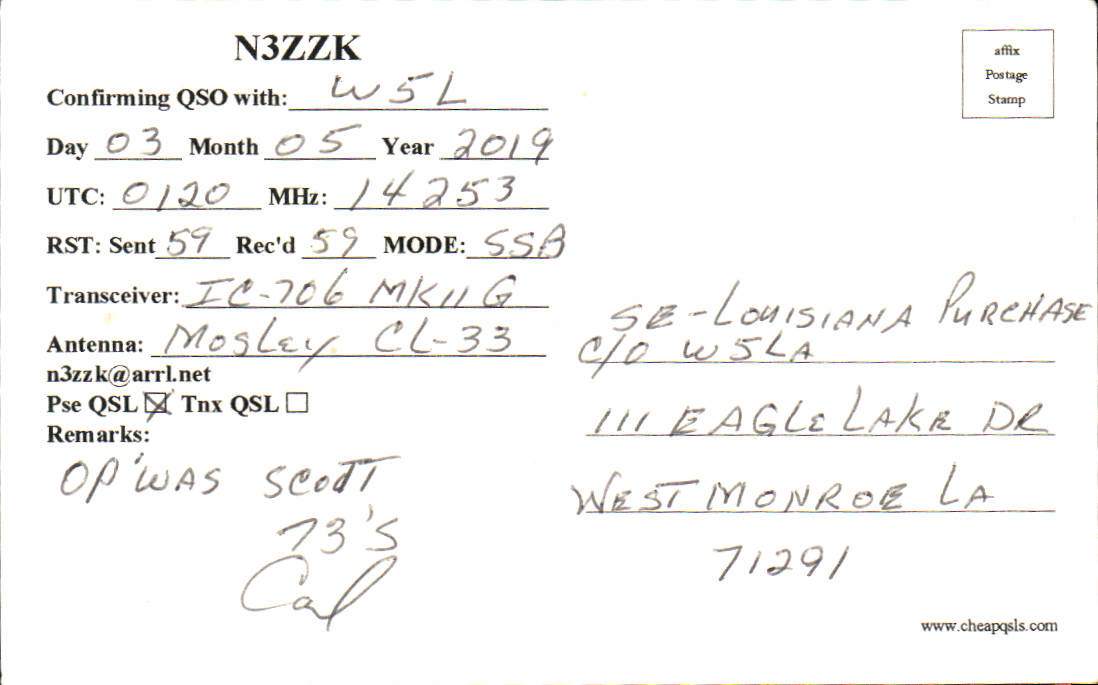 N3ZZK
Confirming QSO with: W5L
Day 03 Month 05 Year 2019
UTC: 0120 MHz: 14253
RST: Sent 59 Rec'd 59 MODE: SSB
Transceiver: IC-706 MKIIG
Antenna: Mosley CL-33
n3zzk@arrl.net
Pse QSL ☒ Tnx QSL ☐
Remarks:
OP'WAS SCOTT
73's
affix
Postage
Stamp
SE-LOUISIANA PURCHASE
C/O W5LA
111 EAGLE LAKE DR
WEST MONROE LA
71291
www.cheapqsls.com